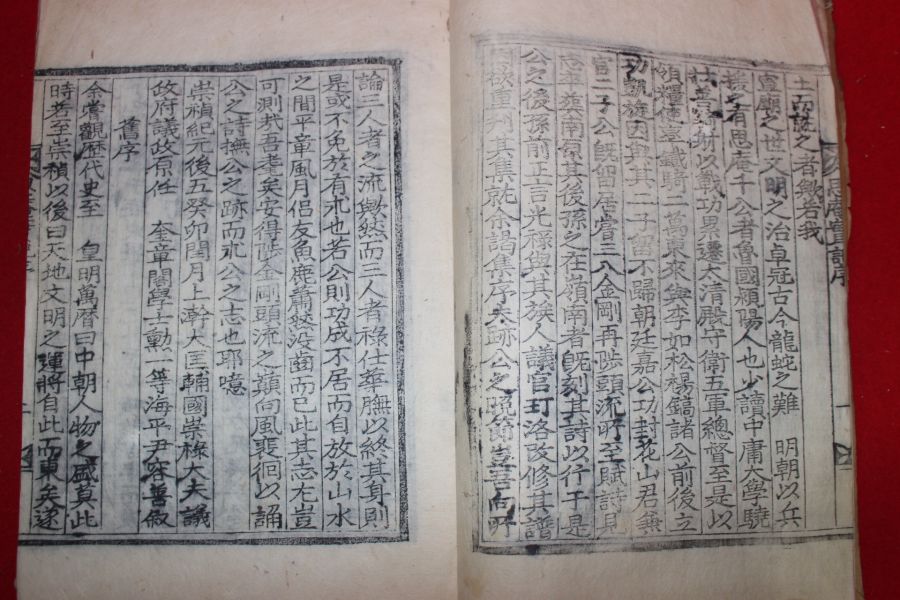 思庵實記序
士而誦之者歟若我
宣廟之世文明之治卓冠古今龍蛇之難 明朝以兵
援有思庵千公者魯國潁陽人也少讀中庸大學驍
技善騎射以戰功累遷太清殿守衛五軍總督至是以
領釋使率鐵騎二萬東來與李如松楊鎬諸公前後立
功凱旋因與其二子留不歸朝廷嘉公功封花山君兼
宣二子公旣留居嘗三入金剛再陟頭流所至賦詩見
志卒葬南原其後孫之在嶺南者旣刻其詩以行于是
公之後孫前正言光祿與其族人議官玎洛改修其譜
欲重刊其集就余謁集序夫跡公之疏節豈吾向所
論三人者之流歟然而三人者祿仕華膴以終其身則
是或不免於有朮也若公則功成不居而自放於山水
之間平章風月侶友魚鹿蕭然沒齒而已此其志尤豈
可測哉吾耄矣安得陟金剛頭流之顚向風裵徊以誦
公之詩撫公之跡而朮公之志也耶噫
崇禎紀元後五癸卯閏月上澣大匡輔國崇祿大夫議
政府議政原任 奎章閣學士勳一等海平尹容善叙
舊序
余嘗觀歷代史至 皇明萬曆曰中朝人物之盛莫此
時若至崇禎以後曰天地文明之運將自此而東矣遂